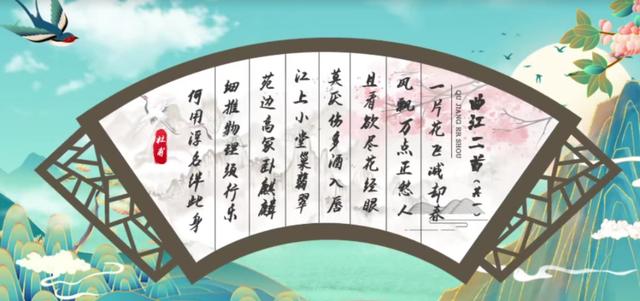 曲江二首（其一）
QU JIANG ER SHOU
一片花飞减却春
风飘万点正愁人
且看欲尽花经眼
莫厌伤多酒入唇
江上小堂巢翡翠
苑边高冢卧麒麟
细推物理须行乐
何用浮名绊此身
杜甫